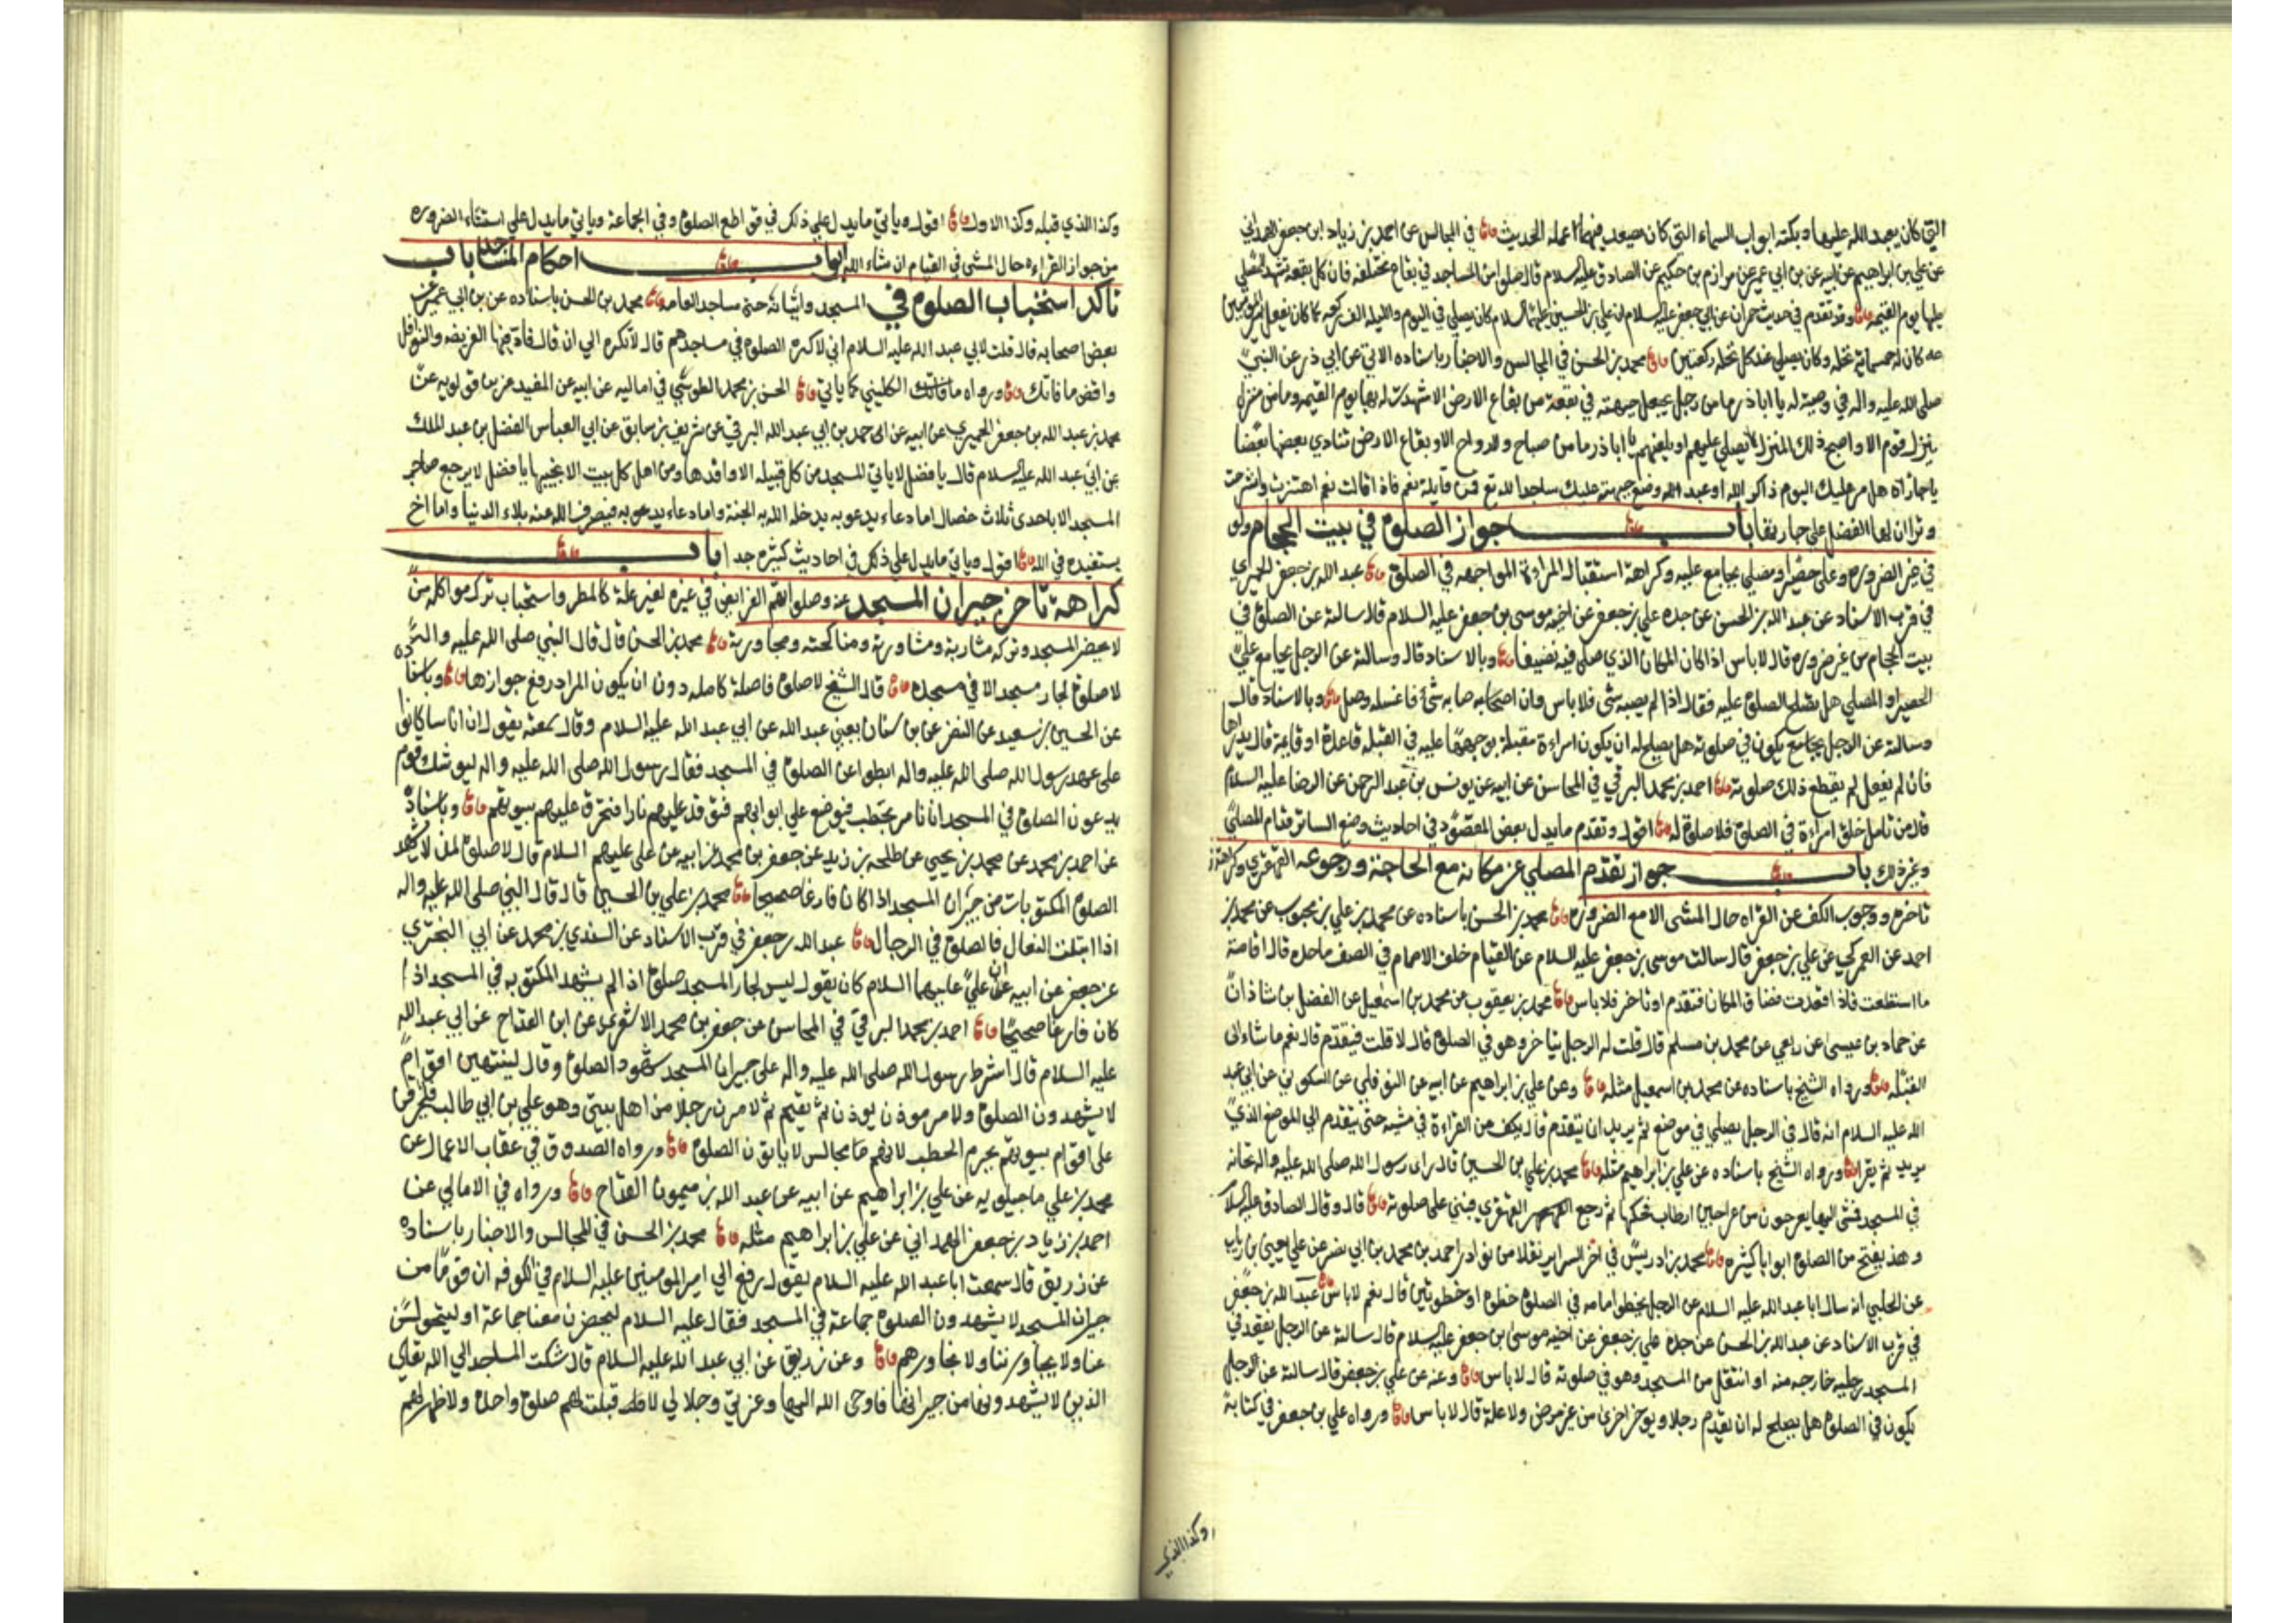 التي كان يعبد الله عليها وبكته ابواب السماء التي كان يصعد فيها عمله الحديث في المجالس عن احمد بن زياد ابن جعفر الهمداني
عن علي بن ابراهيم عن ابيه عن بن ابي عمير عن مرازم بن حكيم عن الصادق عليه السلام قال صلوا من المساجد في بقاع مختلفه فان كل بقعه تشهد للمصلي
عليها يوم القيمه وقد تقدم في حديث حمران عن ابي جعفر عليه السلام ان علي بن الحسين عليهما السلام كان يصلي في اليوم والليله الف ركعه كما كان يفعل امير المومنين
عه كان له خمسمائة نخله وكان يصلي عند كل نخله ركعتين محمد بن الحسن في المجالس والاخبار باسناده الاتي عن ابي ذر عن النبي
صلى الله عليه واله في وصية له يا اباذر ما من رجل يجعل جبهته في بقعة من بقاع الارض الا شهدت له بها يوم القيمه وما من منزل
ينزل قوم الا واصبح ذلك المنزل يصلي عليهم او يلعنهم يا اباذر ما من صباح ولا رواح الا وبقاع الارض تنادي بعضها بعضا
يا جاراه هل مر عليك اليوم ذاكر لله او عبد وضع جبهته عليك ساجدا لله تع فمن قايلة نعم فاذا قالت نعم اهتزت وانشرحت
وترا ان لها الفضل على جارتها باب جواز الصلوة في بيت الحجام ولو
في غير الضرورة وعلى حصير او مصلى يجامع عليه وكراهة استقبال المراءة المواجهه في الصلوة عبد الله بن جعفر الحميري
في قرب الاسناد عن عبد الله بن الحسن عن جده علي بن جعفر عن اخيه موسى بن جعفر عليه السلام قال سالته عن الصلوة في
بيت الحجام من غير ضرورة قال لا باس اذا كان المكان الذي صلى فيه نضيفا وبالاسناد قال وسالته عن الرجل يجامع على
الحصير او المصلى هل تصلح الصلوة عليه فقال اذا لم يصبه شى فلا باس وان اصابه شئ فاغسله وصل وبالاسناد قال
وسالته عن الرجل يكون في صلوته هل يصلح له ان يكون امراءة مقبلة بوجهها عليه في القبلة قاعدة او قايمة قال يدراها
فان لم يفعل لم يقطع ذلك صلوته احمد بن محمد البرقي في المحاسن عن ابيه عن يونس بن عبد الرحمن عن الرضا عليه السلام
قال من تامل خلق امراءة في الصلوة فلا صلوة له اقول وتقدم ما يدل بعض المقصود في احاديث وضع الساتر قدام المصلي
وغير ذلك باب جواز تقدم المصلي عن مكانه مع الحاجة ورجوعه القهقرى وكراهة
تاخره ووجوب الكف عن القراه حال المشى الا مع الضرورة محمد بن الحسن باسناده عن محمد بن علي بن محبوب عن محمد بن
احمد عن العمركي عن علي بن جعفر قال سالت موسى بن جعفر عليه السلام عن القيام خلف الامام في الصف ما حده قال اقامة
ما استطعت فاذا قعدت فضاق المكان فتقدم او تاخر فلا باس محمد بن يعقوب عن محمد بن اسمعيل عن الفضل بن شاذان
عن حماد بن عيسى عن ربعي عن محمد بن مسلم قال قلت له الرجل يتاخر وهو في الصلوة قال لا قلت فيتقدم قال نعم ما شاء الى
القبله ورواه الشيخ باسناده عن محمد بن اسمعيل مثله وعن علي بن ابراهيم عن ابيه عن النوفلي عن السكوني عن ابي عبد
الله عليه السلام انه قال في الرجل يصلي في موضع ثم يريد ان يتقدم قال يكف من القراءة في مشيه حتى يتقدم الى الموضع الذي
يريد ثم يقرا ورواه الشيخ باسناده عن علي بن ابراهيم مثله محمد بن علي بن الحسين قال راى رسول الله صلى الله عليه واله نخامة
في المسجد فمشى اليها بعرجون من عراجين ارطاب فحكها ثم رجع القهقرى فبنى على صلوته قال وقال الصادق عليه السلا
وهذ يفتح من الصلوة ابوابا كثيره محمد بن ادريس في اخر السراير نقلا من نوادر احمد بن محمد بن ابي نصر عن علي
عن الحلبي انه سال ابا عبد الله عليه السلام عن الرجل يخطو امامه في الصلوة خطوة او خطوتين قال نعم لا باس عبد الله بن جعفر
في قرب الاسناد عن عبد الله بن الحسن عن جده علي بن جعفر عن اخيه موسى بن جعفر عليه السلام قال سالته عن الرجل يقعد في
المسجد ورجليه خارجه منه او انتقل من المسجد وهو في صلوته قال لا باس وعنه عن علي بن جعفر قال سالته عن الرجل
يكون في الصلوة هل يصلح له ان يقدم رجلا ويوخر اخرى من غير مرض ولا علة قال لا باس ورواه علي بن جعفر في كتابة
وكذا الذي
وكذا الذي قبله وكذا الاول اقول وياتي ما يدل على ذلك في قواطع الصلوة وفي الجماعة وياتي ما يدل على استثناء الضروره
من جواز القراءه حال المشى في القيام ان شاء الله ابواب احكام المساجد باب
تاكد استحباب الصلوة في المسجد واتيانه حتى مساجد العامه محمد بن الحسن باسناده عن بن ابي عمير عن
بعض اصحابه قال قلت لابي عبد الله عليه السلام اني لاكره الصلوة في مساجدهم قال لا تكره الى ان قال فاد فيها الفريضه والنوافل
واقض ما فاتك ورواه الكليني كما ياتي الحسن بن محمد الطوسي في اماليه عن ابيه عن المفيد عن بن قولويه عن
محمد بن عبد الله بن جعفر الحميري عن ابيه عن احمد بن ابي عبد الله البرقي عن شريف بن سابق عن ابي العباس الفضل بن عبد الملك
عن ابي عبد الله عليه السلام قال يا فضل لا ياتي المسجد من كل قبيله الا وافدها ومن اهل كل بيت الا نجيبها يا فضل لا يرجع صاحب
المسجد الا باحدى ثلاث خصال اما دعاء يدعو به يدخله الله به الجنة واما دعاء يدعو به فيصرف الله عنه بلاء الدنيا واما اخ
يستفيده في الله اقول وياتي ما يدل على ذلك في احاديث كثيره جدا باب
كراهة تاخر جيران المسجد عنه وصلواتهم الفرايض في غيره لغير علة كالمطر واستحباب ترك مواكلة من
لا يحضر المسجد وترك مشاربته ومشاورته ومناكحته ومجاورته محمد بن الحسن قال قال النبي صلى الله عليه واله
لا صلوة لجار مسجد الا في مسجده قال الشيخ لا صلوة فاضلة كامله دون ان يكون المراد رفع جوازها وباسناده
عن الحسين بن سعيد عن النضر عن بن سنان يعني عبد الله عن ابي عبد الله عليه السلام وقال سمعته يقول ان اناسا كانوا
على عهد رسول الله صلى الله عليه واله ابطوا عن الصلوة في المسجد فقال رسول الله صلى الله عليه واله ليوشك قوم
يدعون الصلوة في المسجد ان نامر بحطب فيوضع على ابوابهم فتوقد عليهم نارا فتحرق عليهم بيوتهم وباسناده
عن احمد بن محمد عن محمد بن يحيى عن طلحه بن زيد عن جعفر بن محمد عن ابيه عن علي عليهم السلام قال لا صلوة لمن لا يشهد
الصلوة المكتوبات من جيران المسجد اذا كان فارغا صحيحا محمد بن علي بن الحسين قال قال النبي صلى الله عليه واله
اذا ابتلت النعال فالصلوة في الرحال عبد الله بن جعفر في قرب الاسناد عن السندي بن محمد عن ابي البختري
عن جعفر عن ابيه ان علي عليهما السلام كان يقول ليس لجار المسجد صلوة اذا لم يشهد المكتوبه في المسجد اذا
كان فارغا صحيحا احمد بن محمد البرقي في المحاسن عن جعفر بن محمد الاشعري عن ابن القداح عن ابي عبد الله
عليه السلام قال اشترط رسول الله صلى الله عليه واله على جيران المسجد شهود الصلوة وقال لينتهين اقوام
لا يشهدون الصلوة ولامر موذن يوذن ثم يقيم ثم لامرن رجلا من اهل بيتي وهو علي بن ابي طالب فليحرقن
على اقوام بيوتهم بحزم الحطب لانهم لا ياتون الصلوة ورواه الصدوق في عقاب الاعمال عن
محمد بن علي ماجيلويه عن علي بن ابراهيم عن ابيه عن عبد الله بن ميمون القداح ورواه في الامالي عن
احمد بن زياد بن جعفر الهمداني عن علي بن ابراهيم مثله محمد بن الحسن في المجالس والاخبار باسناده
عن زريق قال سمعت ابا عبد الله عليه السلام يقول رفع الى امير المومنين عليه السلام في الكوفه ان قوما من
جيران المسجد لا يشهدون الصلوة جماعة في المسجد فقال عليه السلام ليحضرن معنا جماعة او ليتحولن
عنا ولا يجاورننا ولا نجاورهم وعن زريق عن ابي عبد الله عليه السلام قال شكت المساجد الى الله تعالى
الذين لا يشهدونها من جيرانها فاوحى الله اليها وعزتي وجلالي لا قبلت لهم صلوة واحدة ولا ظهر لهم